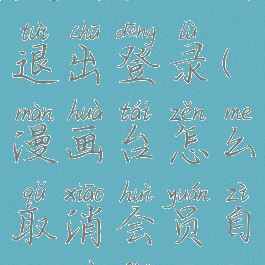 tuì chū dēng lù
退出登录(
màn huà tái zěn me
漫画台怎么
qǔ xiāo huì yuán zì
取消会员自